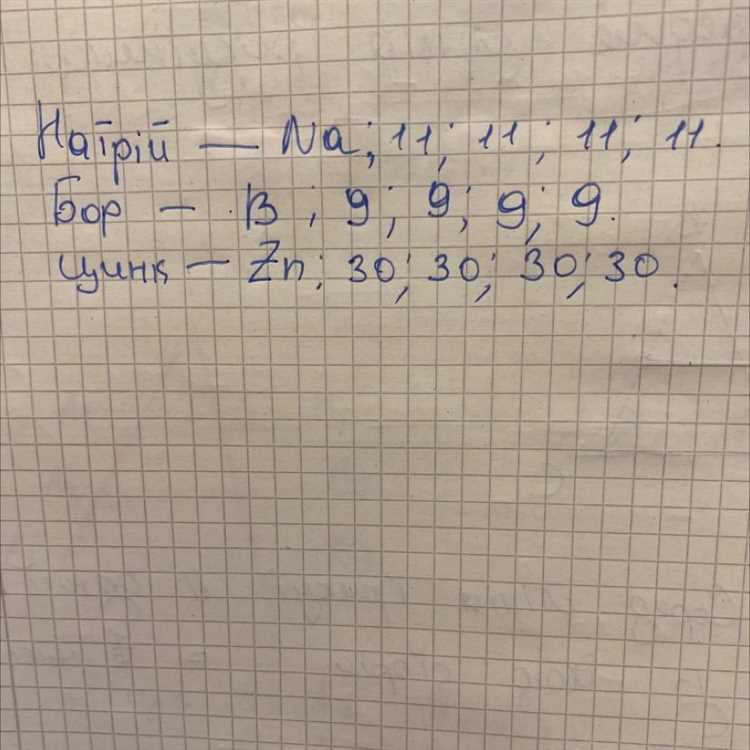 Натрій — Na; 11; 11; 11; 11.
Бор — B; 9; 9; 9; 9.
Цинк — Zn; 30; 30; 30; 30.